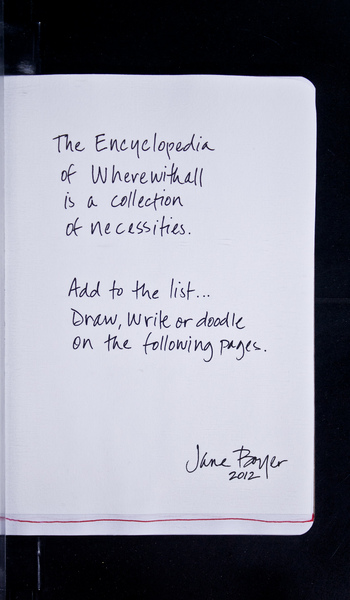 The Encyclopedia
of Wherewithall
is a collection
of necessities.
Add to the list...
Draw, Write or doodle
on the following pages.
Jane Boyer
2012